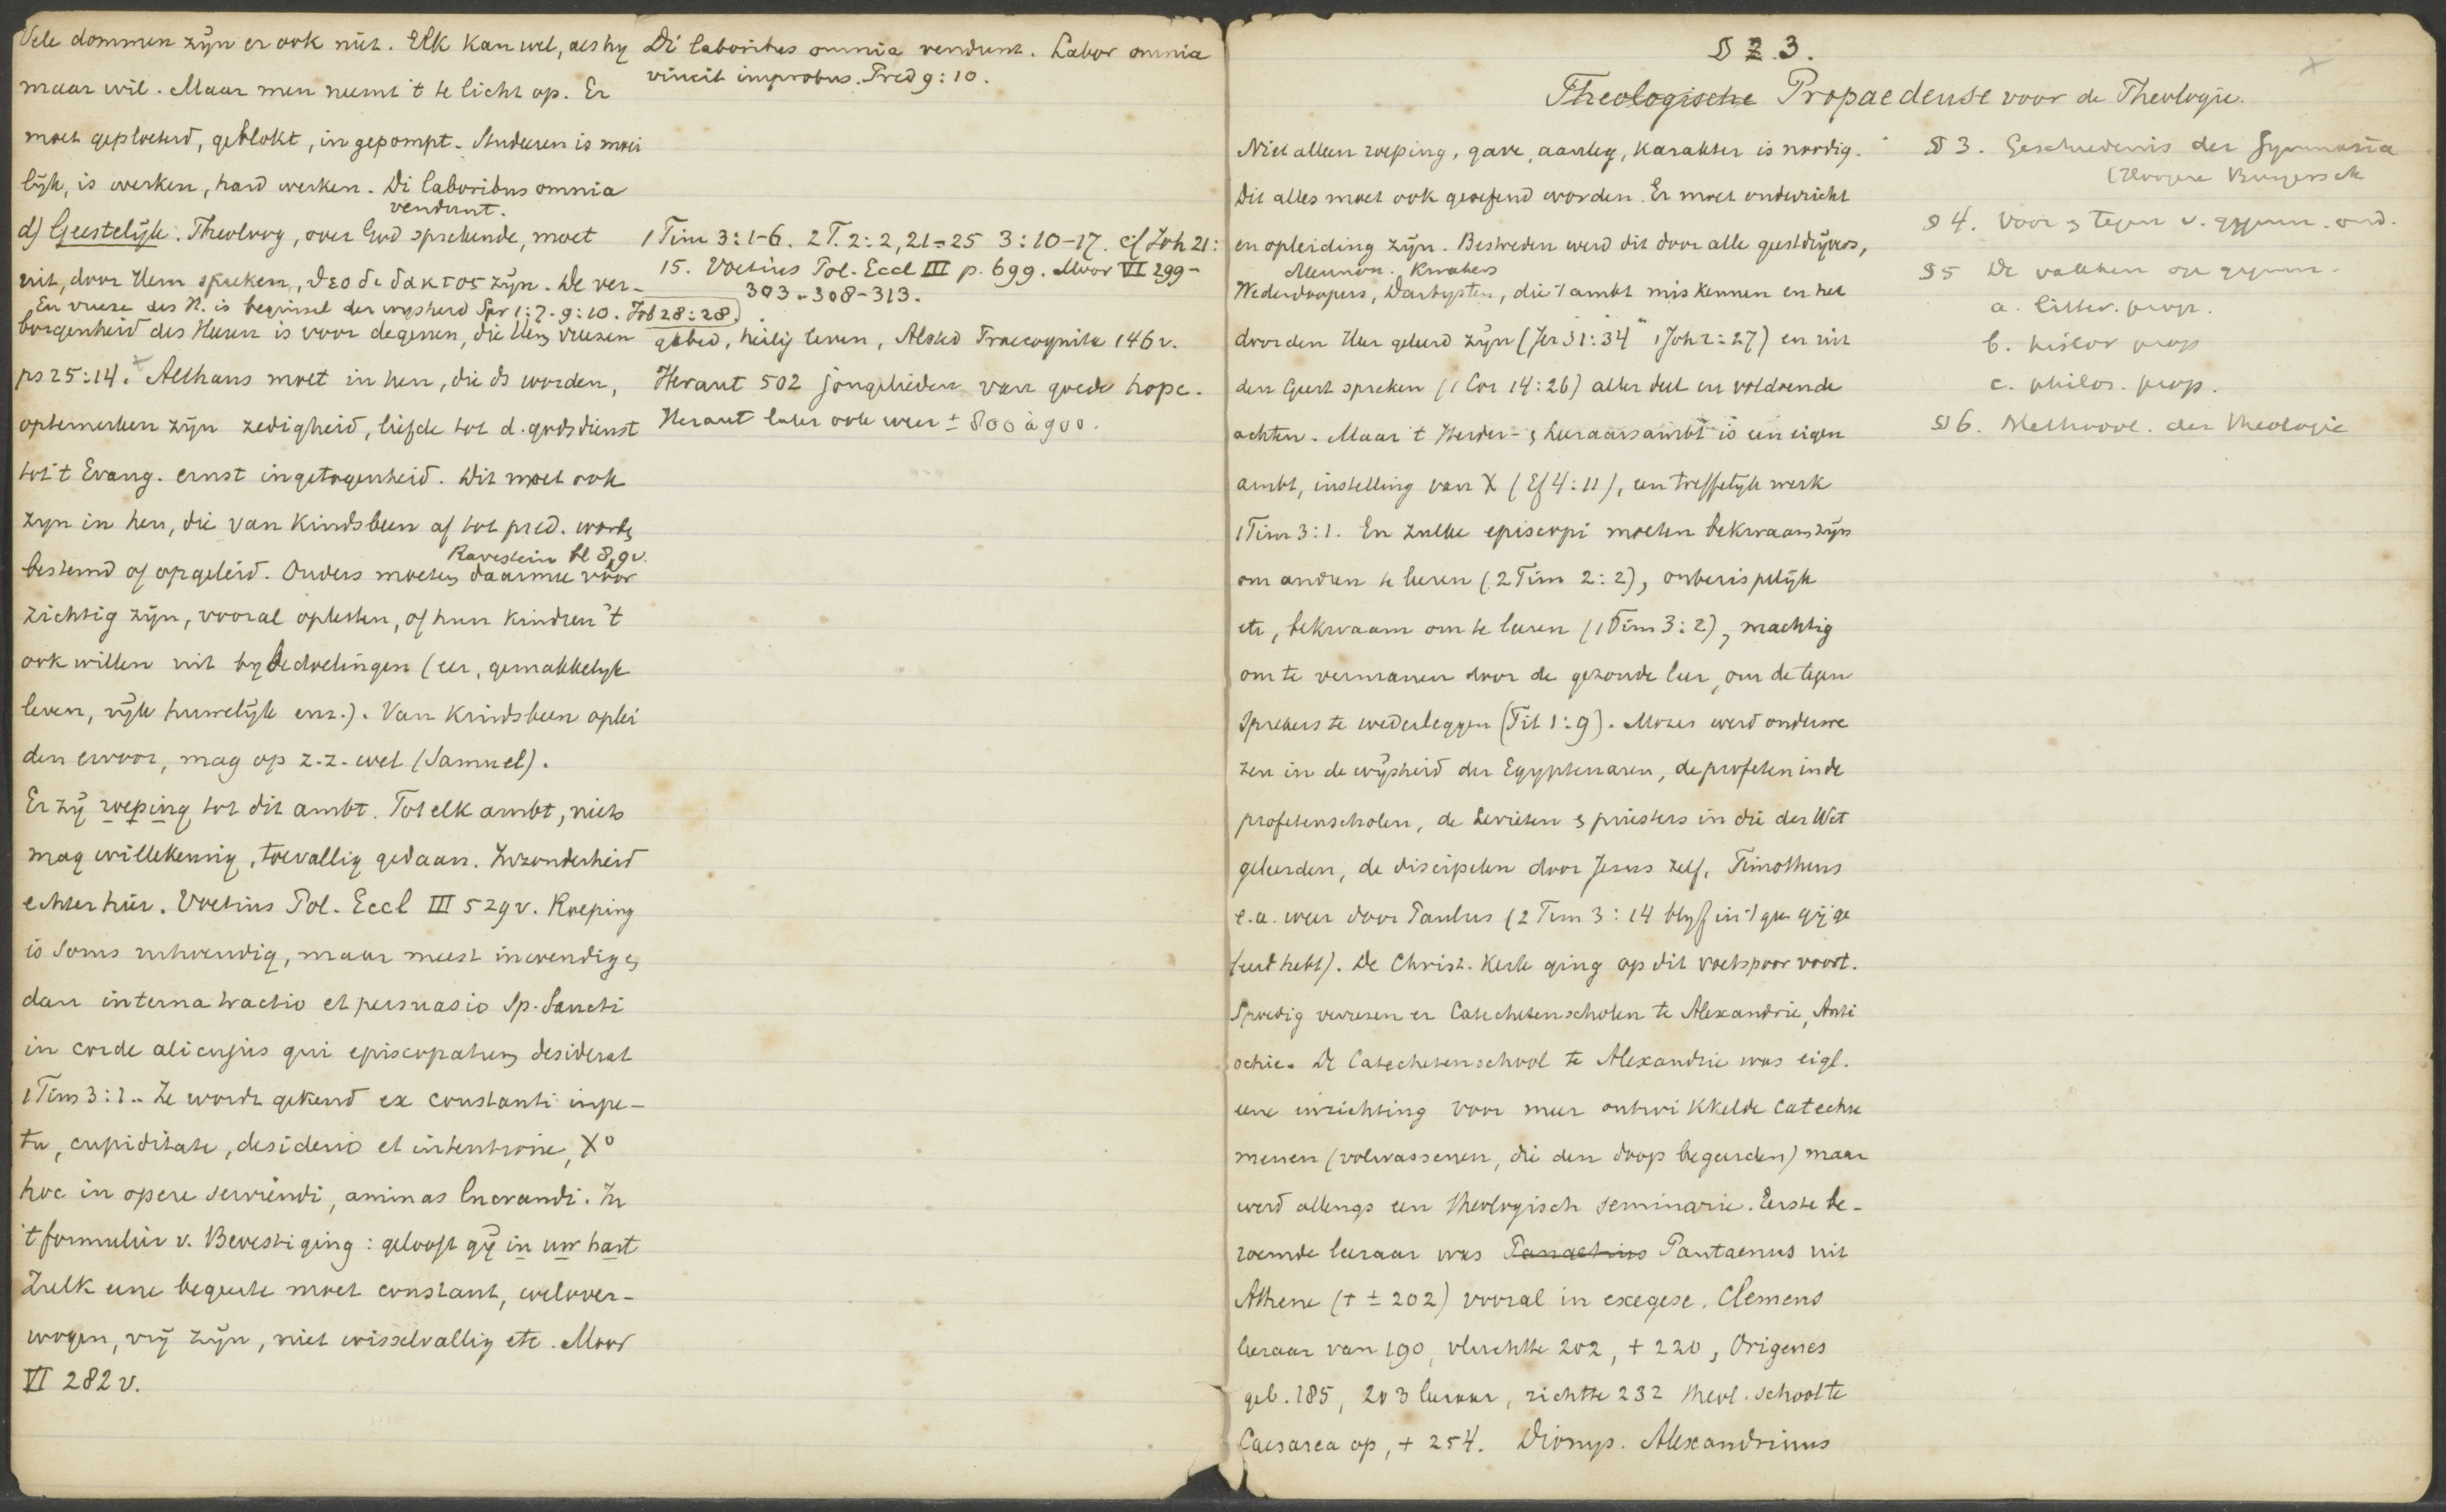 Vele dommen zijn er ook niet. Elk kan wel, als hy
maar wil. Maar men neemt 't te licht op. Er
moet geploeterd, geblokt, ingepompt. Studeeren is moei
lijk, is werken, hard werken. Di laboribus omnia
vendunt.
d) Geestelijk. Theoloog, over God sprekende, moet
uit, door Hem spreken, θεοδιδακτος zijn. De ver-
En vreeze des H. is beginsel der wysheid Spr 1:7. 9:10. Job 28:28.
borgenheid des Heren is voor degenen, die Hem vreezen
ps 25:14. Althans moet in hen, die ds worden,
optemerken zijn zedigheid, liefde tot d. godsdienst
tot 't Evang. ernst ingetogenheid. Dit moet ook
zyn in hen, die van kindsbeen af tot pred. worden
Ravestein bl 8,9v.
bestemd of opgeleid. Ouders moeten daarmee voor
zichtig zijn, vooral opletten, of hun kindren 't
ook willen uit bybedoelingen (eer, gemakkelyk
leven, rijk huwelijk enz.). Van kindsbeen oplei
den ervoor, mag op z.z. wel (Samuel).
Er zij roeping tot dit ambt. Tot elk ambt, niets
mag willekeurig, toevallig gedaan. Inzonderheid
echter hier. Voetius Pol. Eccl III 529v. Roeping
is soms uitwendig, maar meest inwendig en
dan interna tractio et persuasio Sp. Sancti
in corde alicujus qui episcopatum desiderat
1 Tim 3:1.. Ze wordt gekend ex constanti impe-
tu, cupiditate, desiderio et intentione, Xo
hoc in opere serviendi, animas lucrandi. In
't formulier v. Bevestiging: gelooft gij in uw hart
Zulk eene begeerte moet constant, welover-
wogen, vrij zijn, niet wisselvallig etc. Moor
VI 282 v.
Di laboribus omnia vendunt. Labor omnia
vincit improbus. Pred 9:10.
1 Tim 3:1-6. 2 T. 2:2, 21-25 3:10-17. cf Joh 21:
15. Voetius Pol. Eccl III p. 699. Moor VI 299-
303-308-313.
gebed, heilig leven, Alsted Praecognita 146v.
Heraut 502 jongelieden van goede hope.
Heraut later ook weer ± 800 à 900.
§ 2 3.
Theologische Propaedeuse voor de Theologie.
Niet alleen roeping, gave, aanleg, karakter is noodig.
Dit alles moet ook geoefend worden. Er moet onderricht
en opleiding zijn. Bestreden werd dit door alle geestdrijvers,
Mennon. Kwakers
Wederdoopers, Darbysten, die 't ambt miskennen en het
door den Heer geleerd zijn (Jer 31:34 1 Joh 2:27) en uit
den Geest spreken (1 Cor 14:26) aller deel en voldoende
achten. Maar 't Herder- en Leeraarsambt is een eigen
ambt, instelling van X (Ef 4:11), een treffelijk werk
1 Tim 3:1. En zulke episcopi moeten bekwaam zijn
om anderen te leeren (2 Tim 2:2), onberispelijk
etc, bekwaam om te leeren (1 Tim 3:2), machtig
om te vermanen door de gezonde leer, om de tegen
sprekers te wederleggen (Tit 1:9). Mozes werd onderwe
zen in de wijsheid der Egyptenaren, de profeten in de
profetenscholen, de Levieten en priesters in die der Wet
geleerden, de discipelen door Jezus zelf, Timotheus
e.a. weer door Paulus (2 Tim 3:14 blyf in 't gen gij ge
leerd hebt). De Christ. Kerk ging op dit voetspoor voort.
Spoedig verrezen er Catechetenscholen te Alexandrie, Anti
ochie. De Catechetenschool te Alexandrie was eigl.
eene inrichting voor meer ontwikkelde catechu
menen (volwassenen, die den doop begeerden) maar
werd allengs een theologisch seminarie. Eerste be-
roemde leeraar was Panaetius Pantaenus uit
Athene († ± 202) vooral in exegese. Clemens
leeraar van 190, vluchtte 202, † 220, Origenes
geb. 185, 203 leeraar, richtte 232 theol. school te
Caesarea op, † 254. Dionys. Alexandrinus
§ 3. Geschiedenis der Gymnasia
(Hoogere Burgersch
§ 4. Voor en tegen v. gymn. ond.
§ 5 De vakken op gymn.
a. litter. prop.
b. histor prop
c. philos. prop.
§ 6. Methool. der theologie